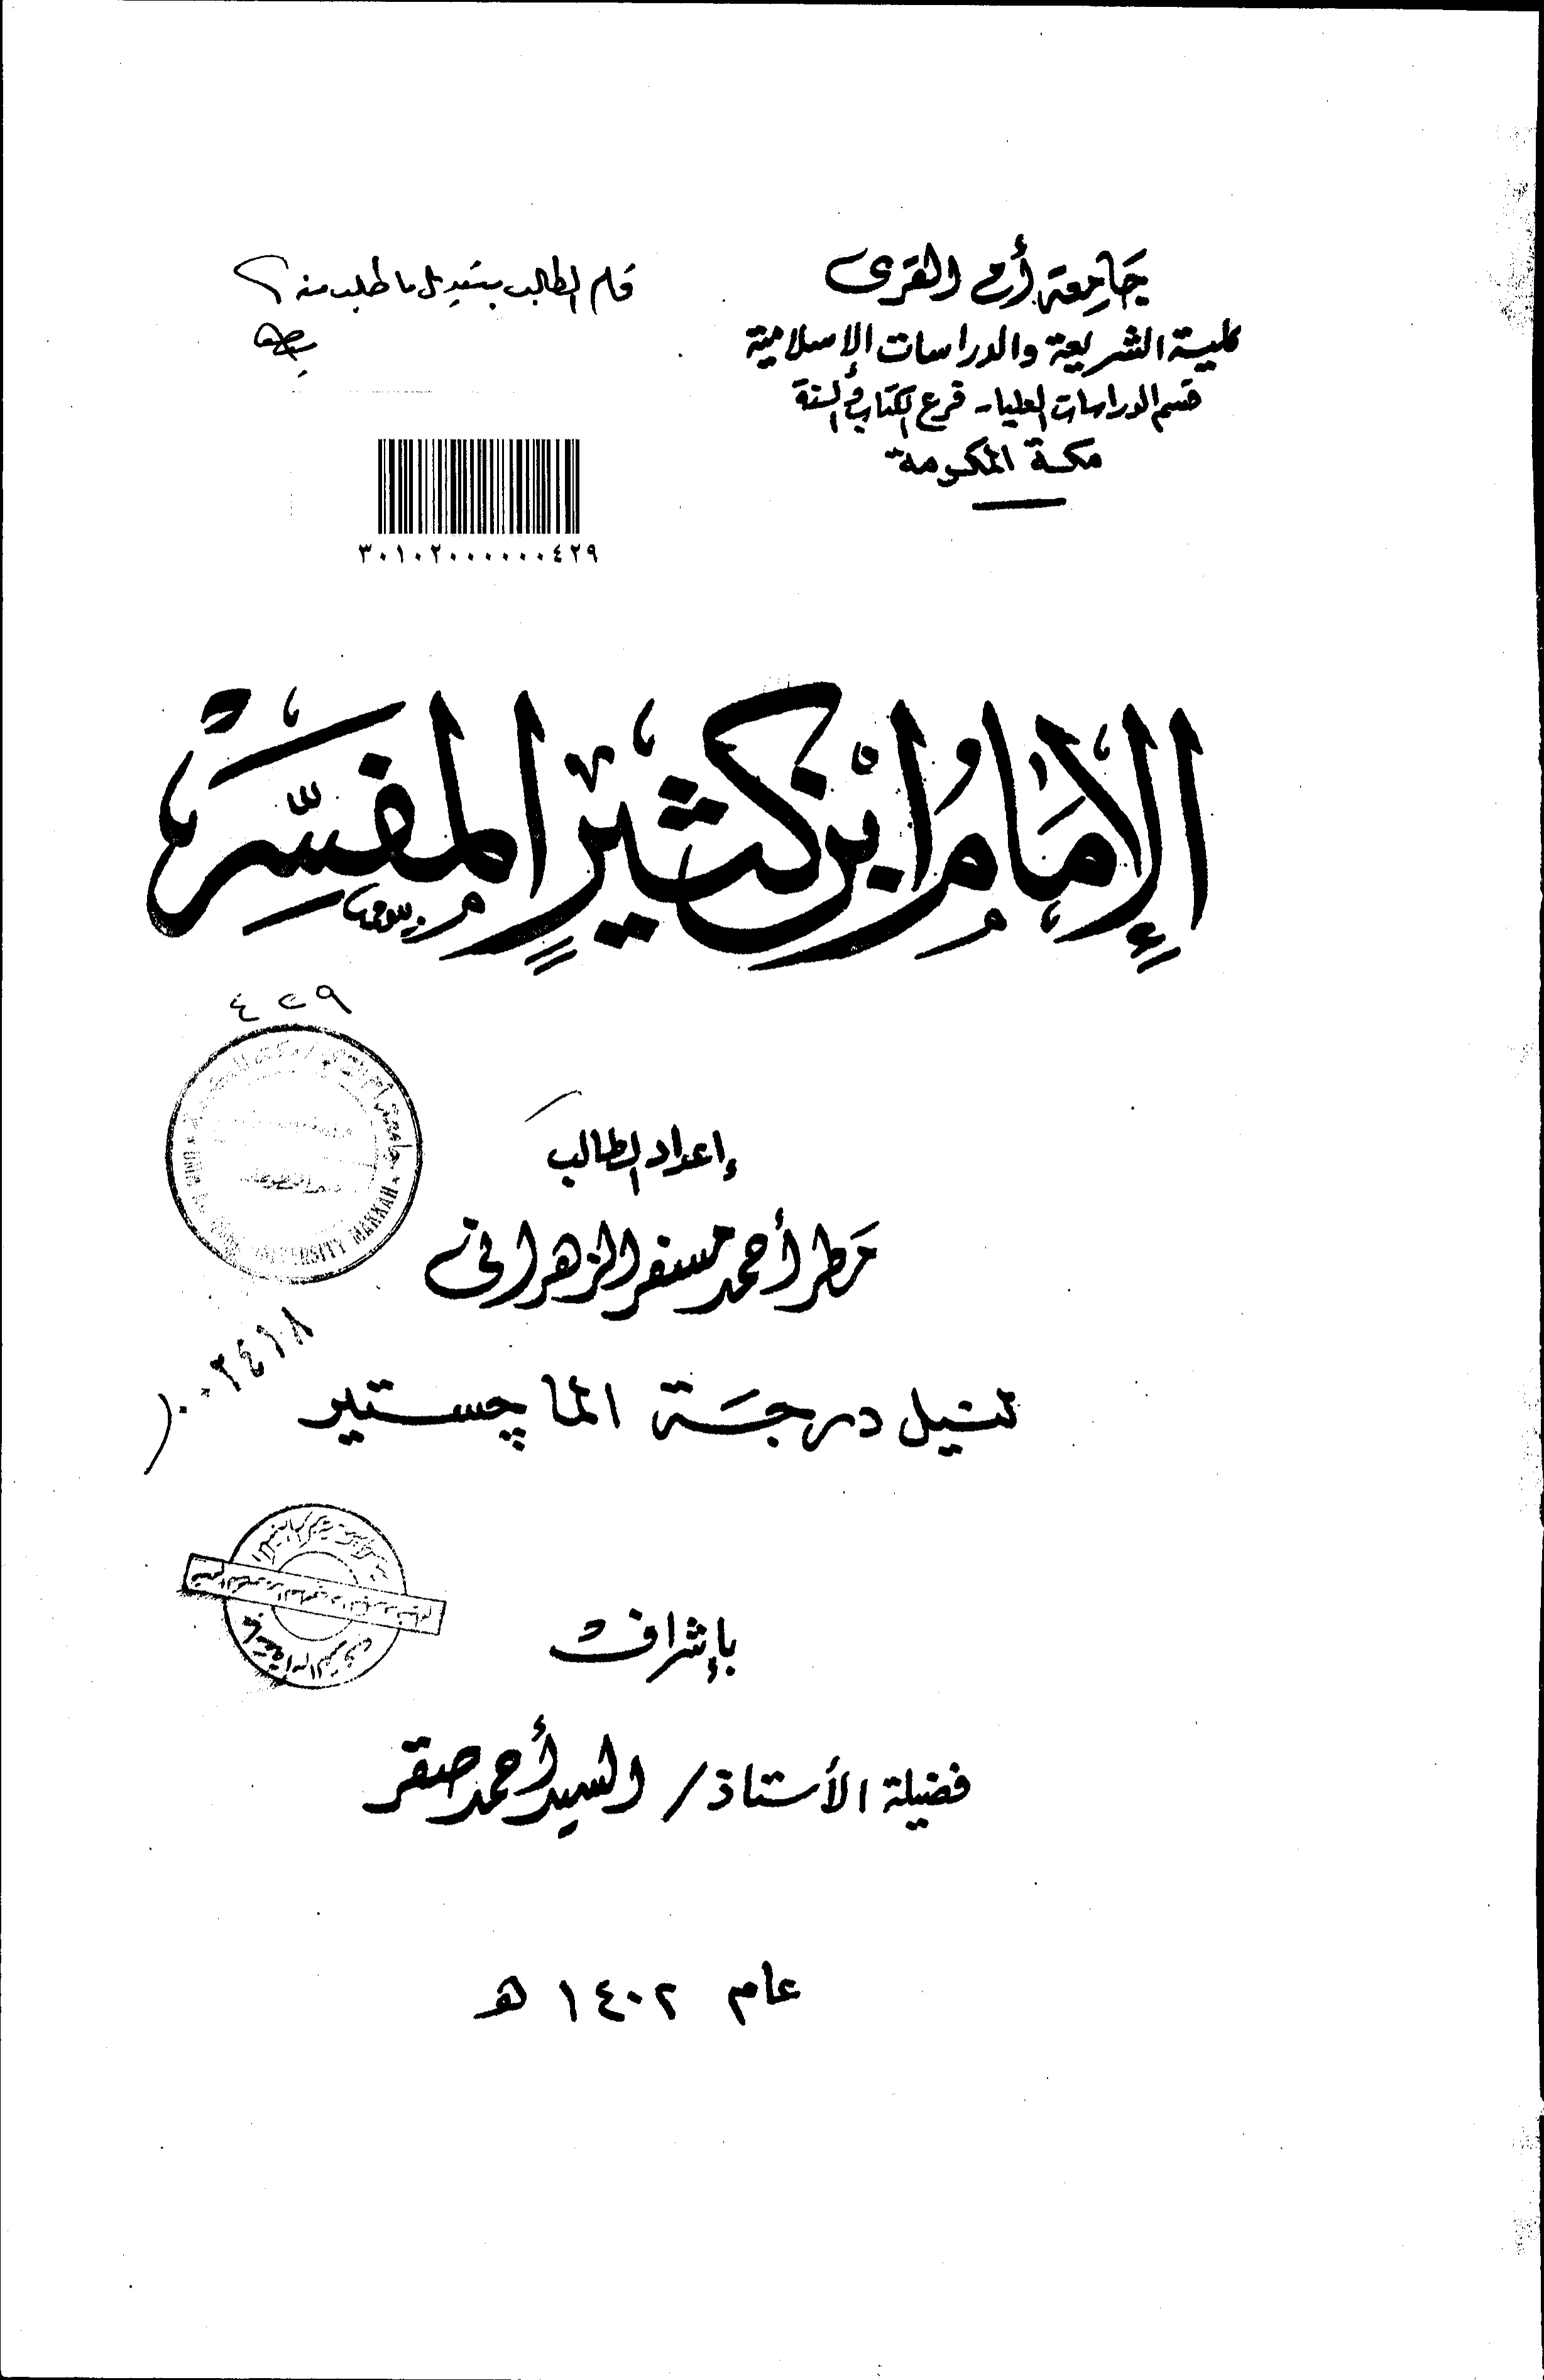 جَامِعة أم القرى
كلية الشريعة والدراسات الإسلامية
قسم الدراسات العليا - فرع الكتاب والسنة
مكة المكرمة
قام الطالب بتعديل ما طلب منه
٣٠١٠٢٠٠٠٠٠٠٤٢٩
الإِمَامُ ابْن كَثيرٍ المفَسِّر
٤٢٩
إعداد الطالب
مَطر أحمد مسفر الزهراني
UNIVERSITY MAKKAH
لنيل درجَة الماجستير
بإشراف
فضيلة الأستاذ / السيد أحمد صقر
عام ١٤٠٢ هـ